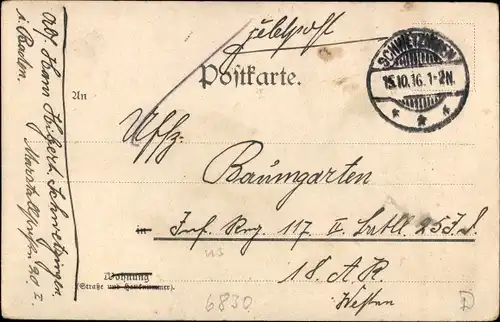 Feldpost
Postkarte.
SCHWETZINGEN
15.10.16. 1-2N.
An
Uffz.
Baumgarten
in Inf. Reg. 117 II. Batll. 25 J.D.
18. A.K.
Wohnung
(Straße und Hausnummer).
Westen
6830
D
Abs. Hans Hubert. Schwetzingen.
i. Baden.
20 I.